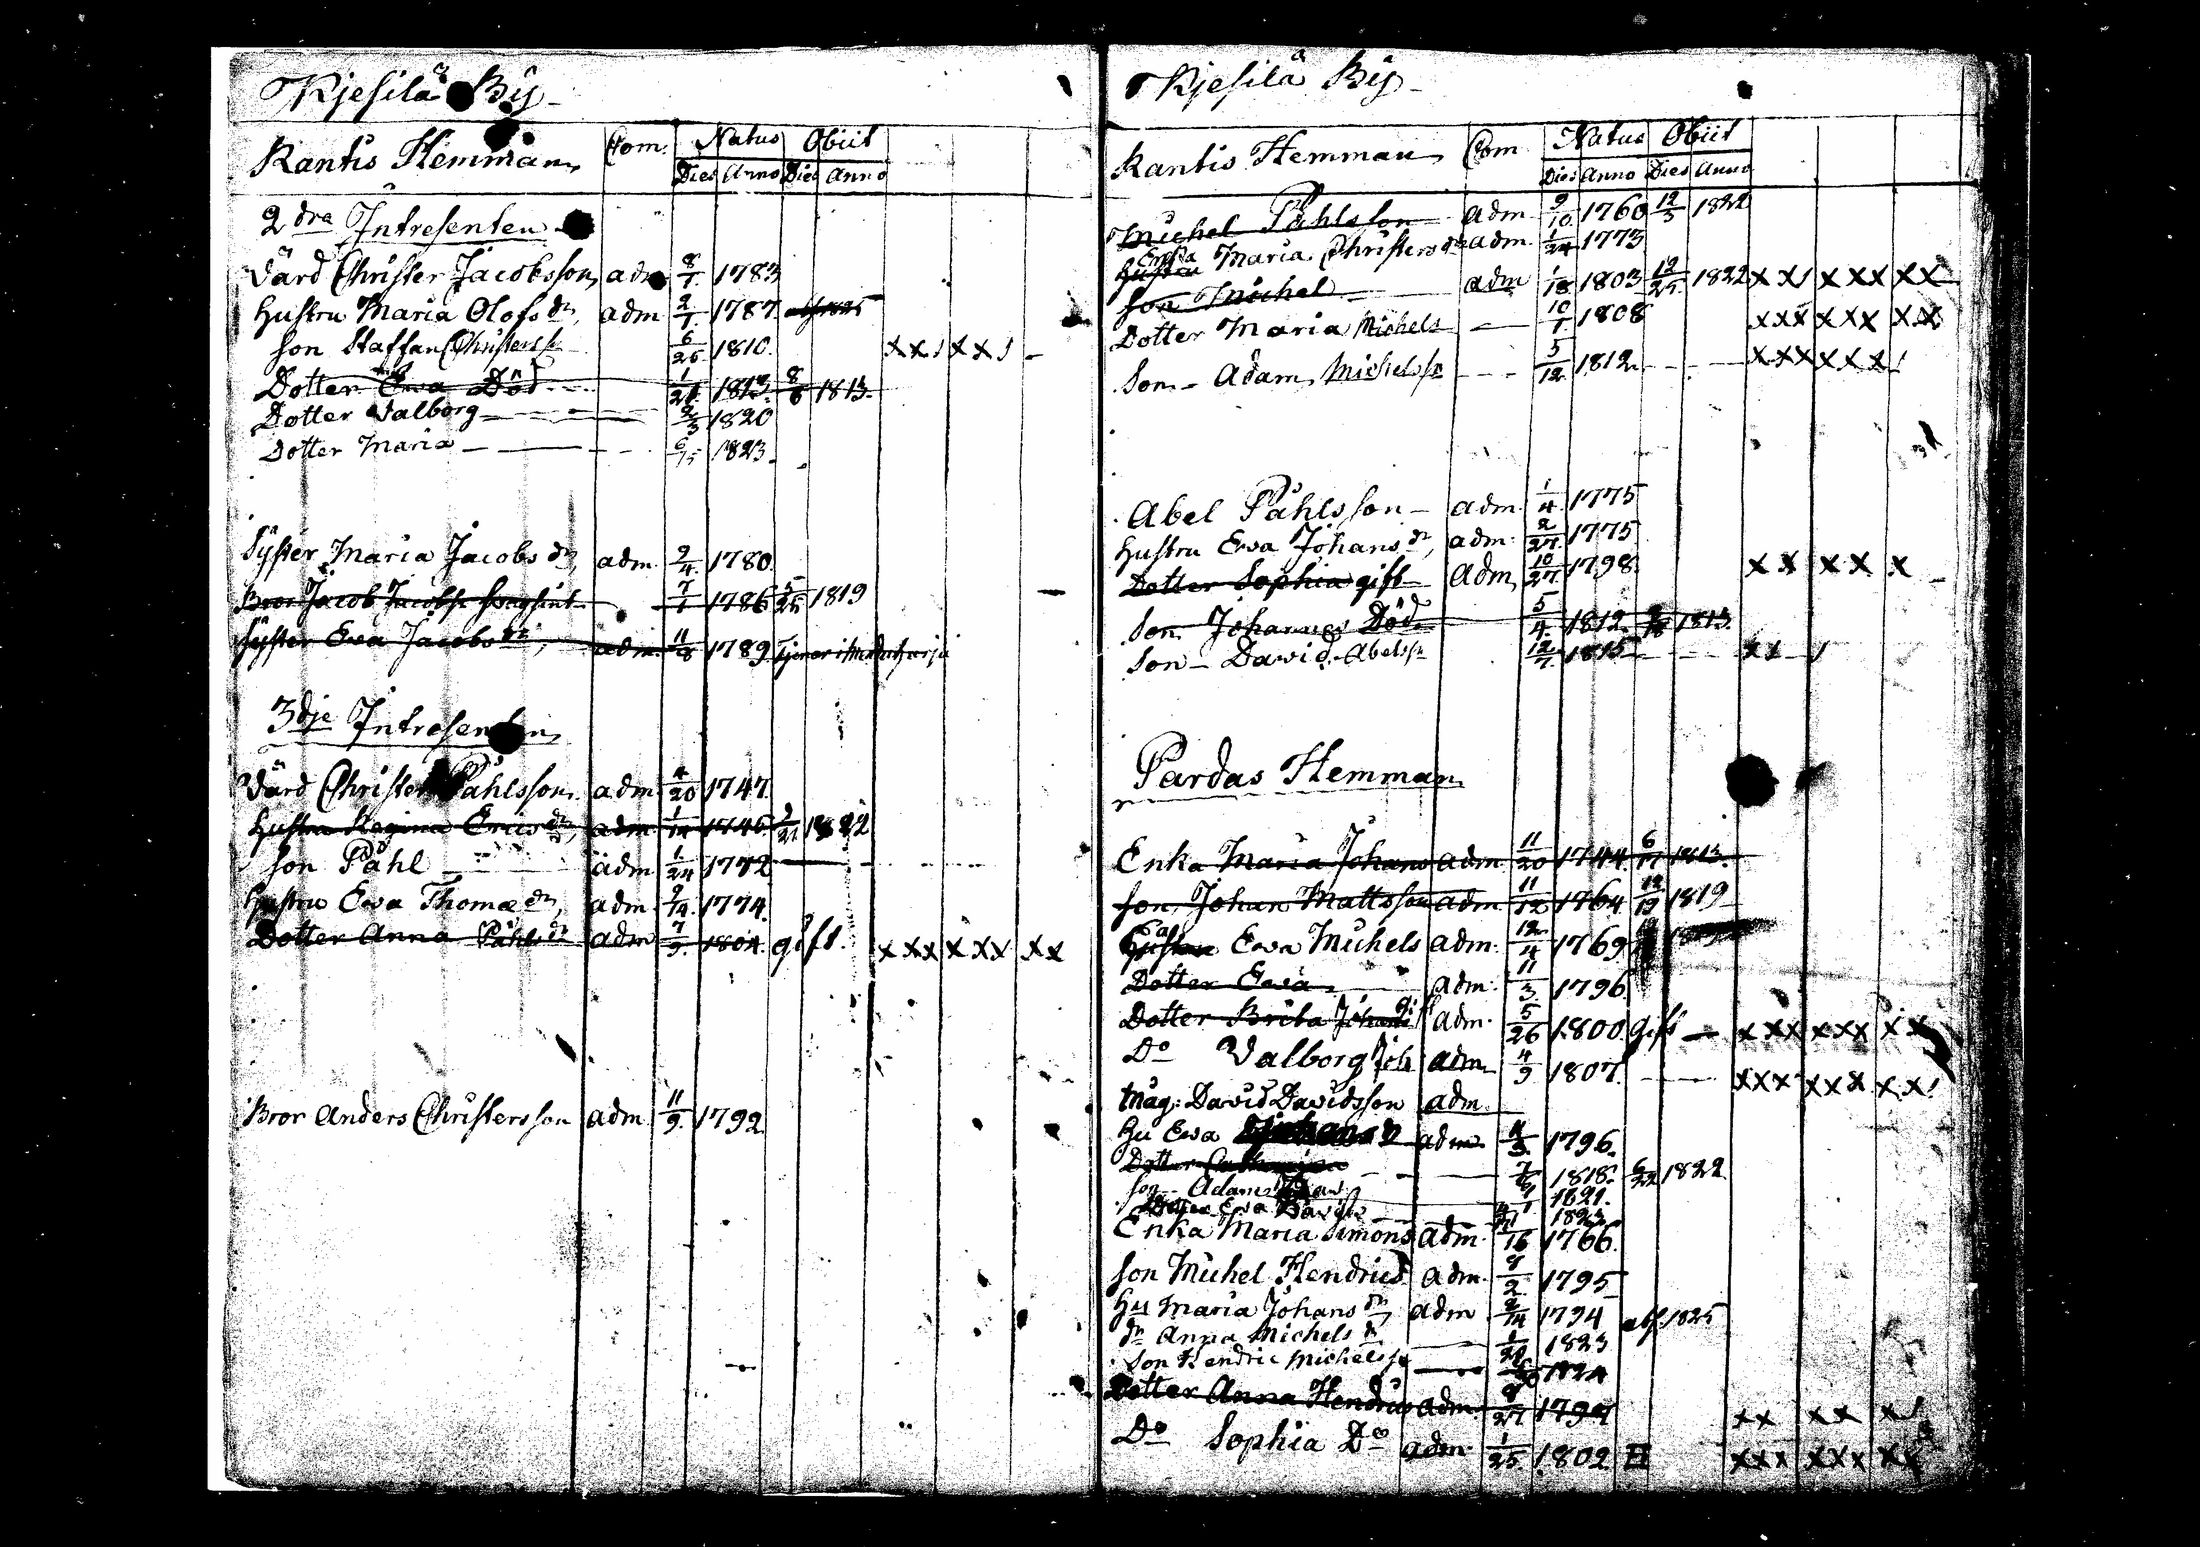 Kjesilä By
Kantis Hemman Com. Natus Obiit
Dies Anno Dies Anno
2dra Intresenten
Värd Christer Jacobsson adm 8/7 1783
Hustru Maria Olofs dr adm 2/7 1787
Son Staffan Christerss 6/26 1810 xx/xx/
Dotter Ewa Död 1/21 1813 8/8 1813
Dotter Valborg 2/3 1820
Dotter Maria 6/15 1823
Syster Maria Jacobs dr adm. 9/4 1780
Bror Jacob Jacobss 7/1 1786 5/25 1819
Syster Ewa Jacobs dr adm. 11/8 1789 Tjener i
3dje Intresenten
Värd Christer Påhlsson adm 4/20 1747
Hustru Regina Erics dr adm 1/14 1746 1822
Son Påhl adm 1/24 1772
Hustru Ewa Thomæ dr adm 9/14 1774
Dotter Anna Påhls dr adm 7/9 1804 gift. xxx xxx xx
Bror Anders Christersson adm 11/9 1792
Kjesilä By
Kantis Hemman Com Natus Obiit
Dies Anno Dies Anno
Michel Påhlsson adm 9/10 1760 12/5 1822
Enka Hustru Maria Christers dr adm. 1/24 1773
Son Michel adm 1/18 1803 12/25 1822 xx/ xxx xx
Dotter Maria Michels 10/1 1808 xxx xxx xx
Son Adam Michelss 5/12 1812 xxx xxx/
Abel Påhlsson adm. 1/4 1775
Hustru Ewa Johans dr adm. 2/27 1775
Dotter Sophia gift Adm 10/27 1798 xx xx x
Son Johannes Död 5/4 1812 1813
Son David Abelss 12/7 1815 xx /
Pardas Hemman
Enka Maria Johans adm 11/20 1744 6/17 1813
Son Johan Mattsson adm 11/12 1764 12/19 1819
Hustru Ewa Michels adm. 12/4 1769
Dotter Ewa adm. 11/3 1796
Dotter Brita Johans adm. 5/26 1800 Gift xxx xxx xx
Do Valborg Joh adm 4/9 1807 xxx xxx xx/
Måg: David Davidsson adm.
Hu Ewa adm 11/3 1796
Dotter 1818 6/22 1822
Son Adam 1821
Dotter Ewa 1823
Enka Maria Simons adm. 1766
Son Michel Hendrics adm. 9/2 1795
Hu Maria Johans dr adm 2/14 1794 1825
dr Anna Michels dr 1823
Son Hendric Michelss 1824
Dotter Anna Hendrics adm. 1797 xx xx x/
Do Sophia Do adm. 1/25 1802 xxx xxx xx